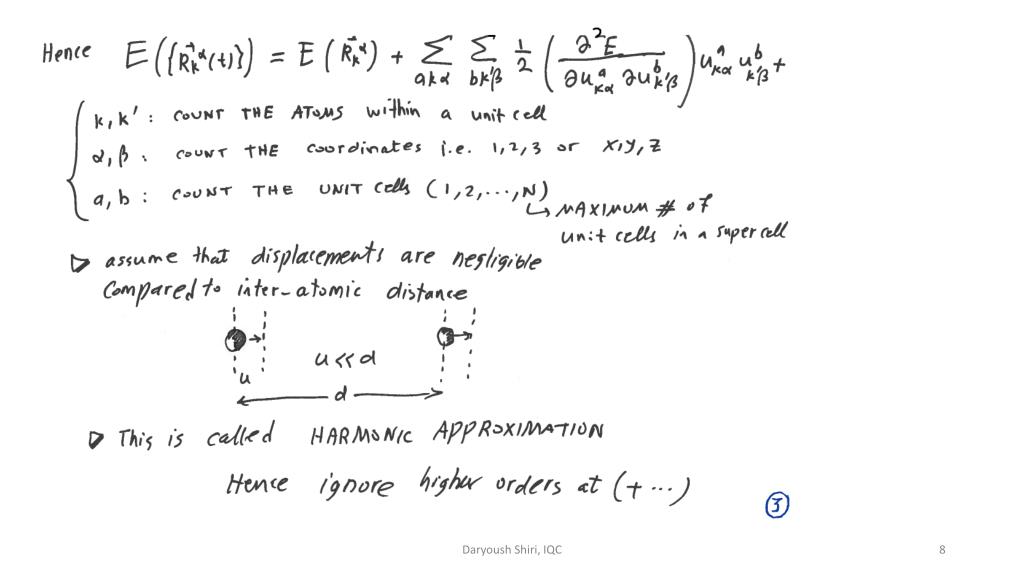 Hence E({R⃗ₖᵅ(t)}) = E(R⃗ₖᵅ) + Σ_{akα} Σ_{bk'β} 1/2 (∂²E / ∂u^a_{kα} ∂u^b_{k'β}) u^a_{kα} u^b_{k'β} +
k, k' : COUNT THE ATOMS within a unit cell
α, β : COUNT THE coordinates i.e. 1,2,3 or x,y,z
a, b : COUNT THE UNIT Cells (1,2,...,N)
↳ MAXIMUM # of
unit cells in a super cell
▷ assume that displacements are negligible
Compared to inter-atomic distance
u << d
u
d
▷ This is called HARMONIC APPROXIMATION
Hence ignore higher orders at (+ ...)
③
Daryoush Shiri, IQC
8